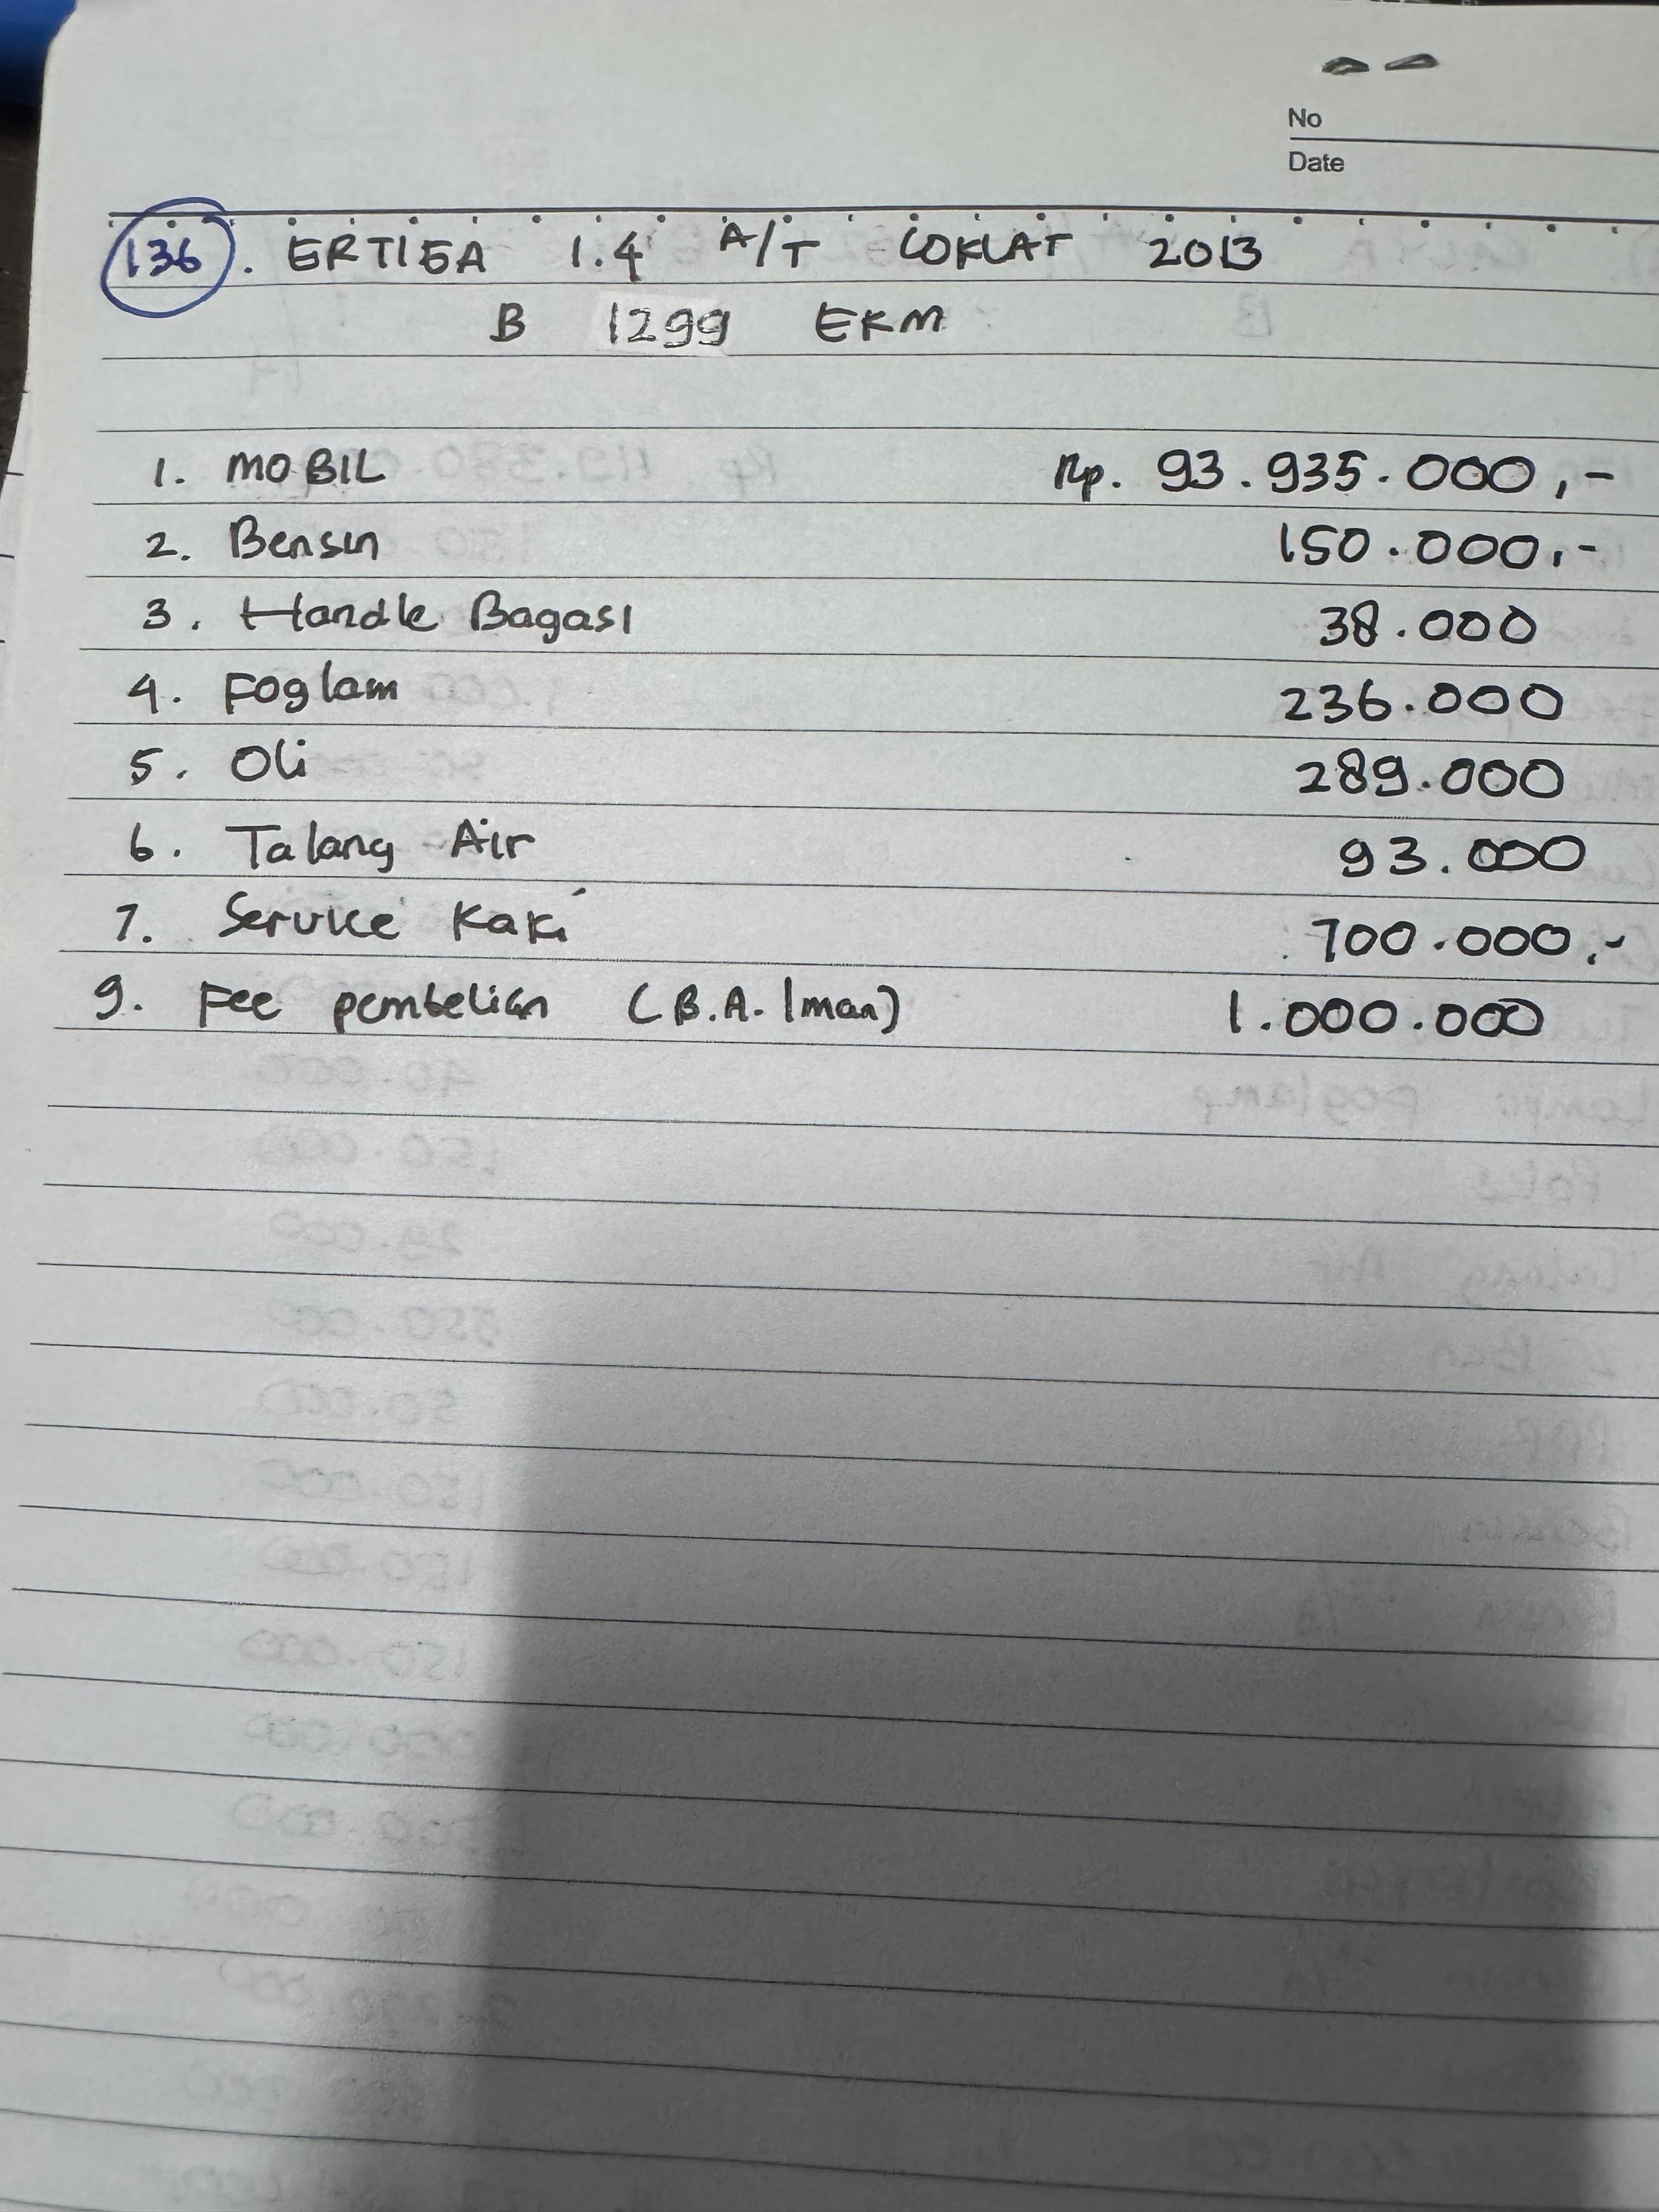 No
Date
136. ERTIGA 1.4 A/T COKLAT 2013
B 1299 EKM
1. MOBIL Rp. 93.935.000,-
2. Bensin 150.000,-
3. Handle Bagasi 38.000
4. Foglam 236.000
5. Oli 289.000
6. Talang Air 93.000
7. Service Kaki 700.000,-
9. Fee pembelian (B.A. Iman) 1.000.000